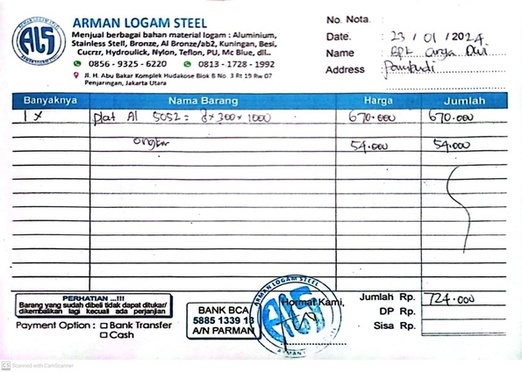 ARMAN LOGAM STEEL
Menjual berbagai bahan material logam : Aluminium,
Stainless Stell, Bronze, Al Bronze/ab2, Kuningan, Besi,
Cucrzr, Hydroulick, Nylon, Teflon, PU, Mc Blue, dll..
0856 - 9325 - 6220 0813 - 1728 - 1992
Jl. H. Abu Bakar Komplek Hudakose Blok B No. 3 Rt 19 Rw 07
Penjaringan, Jakarta Utara
ALS
No. Nota :
Date. : 23 / 01 / 2024
Name : Bpk Arya Dwi
Address :
Banyaknya Nama Barang Harga Jumlah
1 x plat Al 5052 = 8 x 300 x 1000 670.000 670.000
ongkir 54.000 54.000
PERHATIAN ...!!!
Barang yang sudah dibeli tidak dapat ditukar/
dikembalikan lagi kecuali ada perjanjian
Payment Option : Bank Transfer
Cash
BANK BCA
5885 1339 13
A/N PARMAN
ARMAN LOGAM STEEL
ALS
Hormat Kami,
Jumlah Rp. 724.000
DP Rp.
Sisa Rp.
CS Scanned with CamScanner